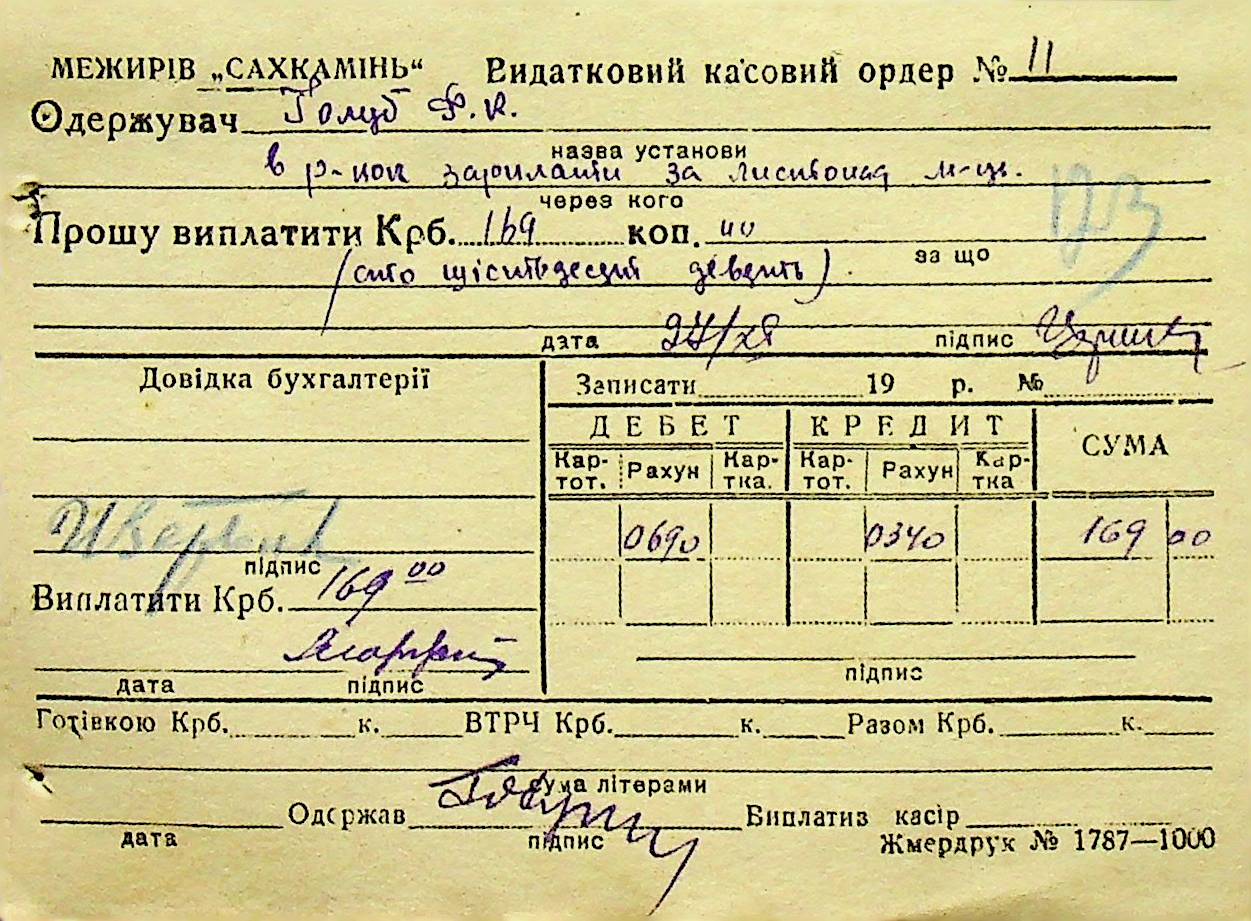 МЕЖИРІВ „САХКАМІНЬ“ Видатковий касовий ордер № 11
Одержувач Голуб Ф. К.
назва установи
в р-нок зарплати за листопад м-ць.
через кого
Прошу виплатити Крб. 169 коп. 00
за що
(сто шістьдесят девять).
дата 24/XI підпис
Довідка бухгалтерії
Записати 19 р. №
ДЕБЕТ КРЕДИТ СУМА
Кар-тот. Рахун Кар-тка. Кар-тот. Рахун Кар-тка
0690 0340 169 00
підпис
Виплатити Крб. 169 00
дата підпис
підпис
Готівкою Крб. к. ВТРЧ Крб. к. Разом Крб. к.
сума літерами
Одержав Виплатив касір
дата підпис
Жмердрук № 1787—1000